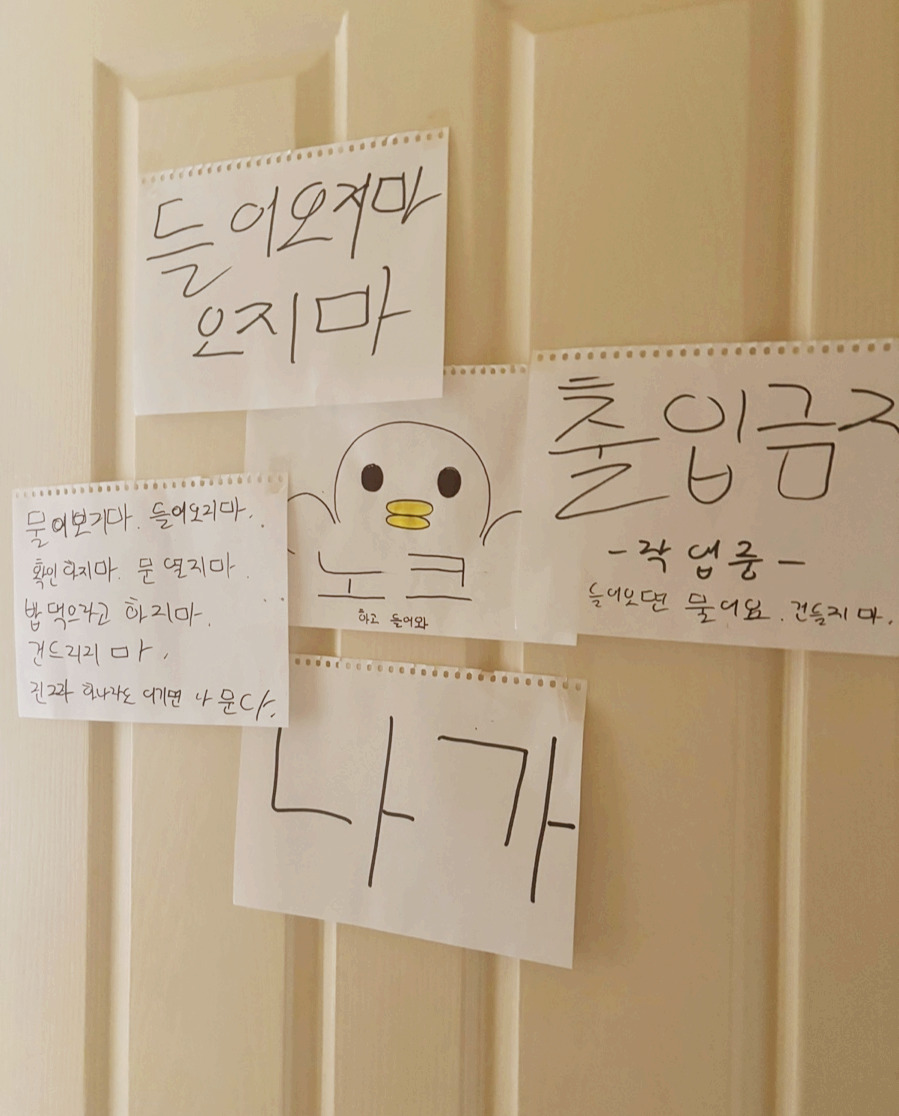 들어오지마
오지마
노크
하고 들어와
출입금지
-작업중-
들어오면 물어요. 건들지마.
물어보기마. 들어오지마.
확인하지마. 문 열지마
밥 먹으라고 하지마.
건드리리 마.
하나라도 어기면 나 문다.
나가